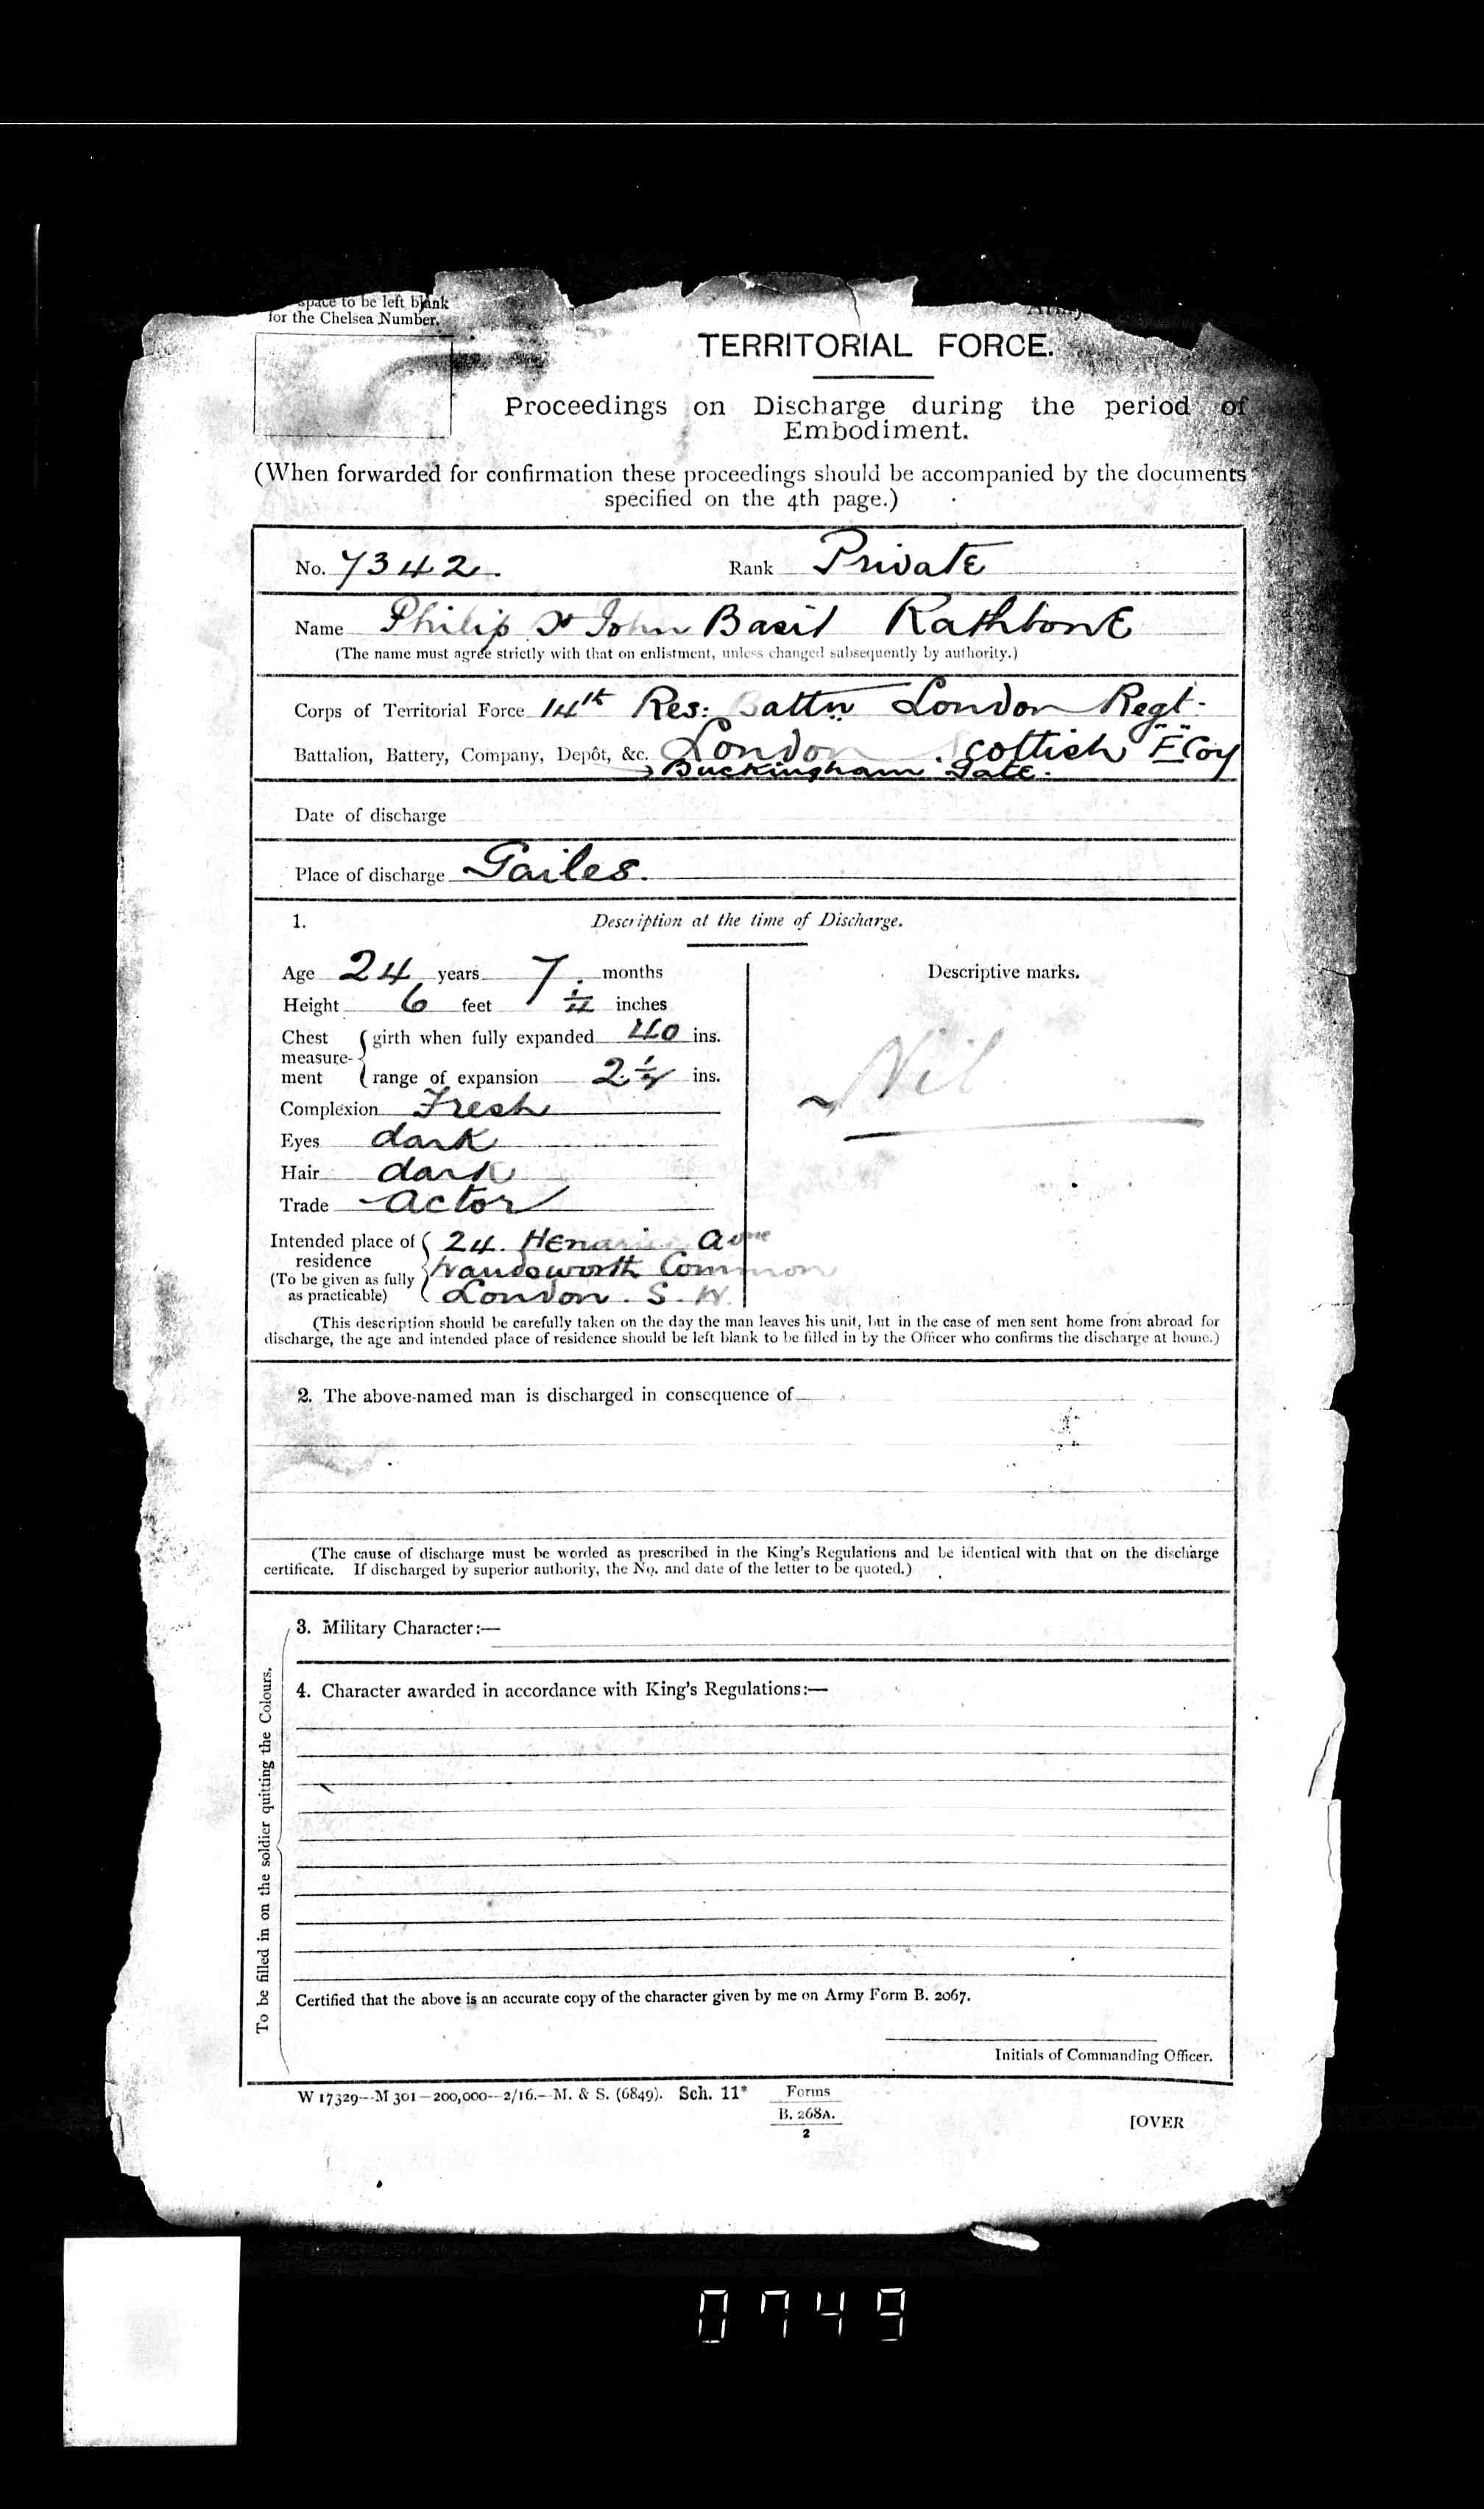 space to be left blank
for the Chelsea Number.
TERRITORIAL FORCE.
Proceedings on Discharge during the period of
Embodiment.
(When forwarded for confirmation these proceedings should be accompanied by the documents
specified on the 4th page.)
No. 7342. Rank Private
Name Philip St John Basil Rathbone
(The name must agree strictly with that on enlistment, unless changed subsequently by authority.)
Corps of Territorial Force 14th Res: Battn London Regt.
Battalion, Battery, Company, Depôt, &c. London Scottish "E" Coy
Buckingham Gate.
Date of discharge
Place of discharge Gailes.
1. Description at the time of Discharge.
Age 24 years 7 months
Height 6 feet inches
Chest measurement { girth when fully expanded 40 ins.
range of expansion 2 1/2 ins.
Complexion Fresh
Eyes dark
Hair dark
Trade Actor
Descriptive marks.
Nil
Intended place of residence (To be given as fully as practicable) { 24.
Wandsworth Common
London. S.W.
(This description should be carefully taken on the day the man leaves his unit, but in the case of men sent home from abroad for
discharge, the age and intended place of residence should be left blank to be filled in by the Officer who confirms the discharge at home.)
2. The above-named man is discharged in consequence of
(The cause of discharge must be worded as prescribed in the King's Regulations and be identical with that on the discharge
certificate. If discharged by superior authority, the No. and date of the letter to be quoted.)
To be filled in on the soldier quitting the Colours.
3. Military Character:—
4. Character awarded in accordance with King's Regulations:—
Certified that the above is an accurate copy of the character given by me on Army Form B. 2067.
Initials of Commanding Officer.
W 17329--M 301—200,000--2/16.--M. & S. (6849). Sch. 11* Forms
B. 268A.
2
[OVER
0749